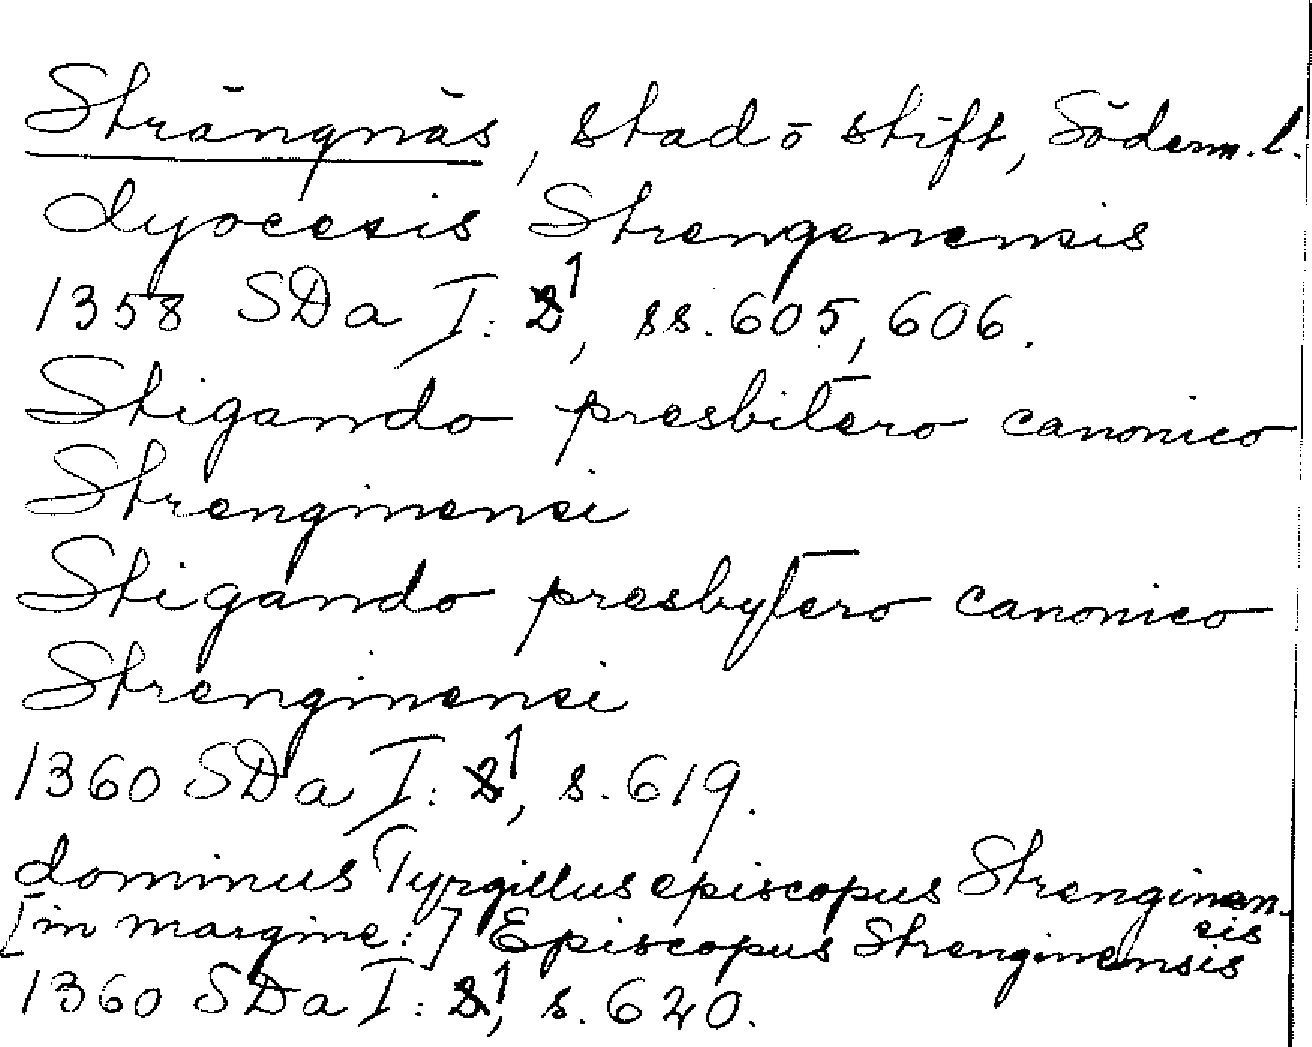 Strängnäs, stad o stift, Söderm. l.
dyocesis Strengenensis
1358 SDa I: 1, ss. 605, 606.
Stigando presbitero canonico
Strenginensi
Stigando presbytero canonico
Strenginensi
1360 SDa I: 1, s. 619.
dominus Tyrgillus episcopus Strenginen-
sis
[in margine:] Episcopus Strenginensis
1360 SDa I: 1, s. 620.